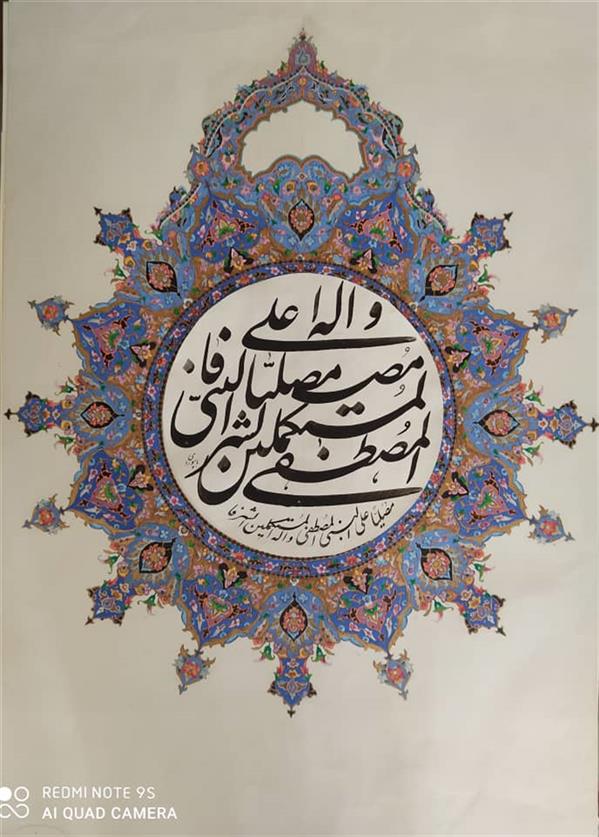 و اله ا علی
مصلیا النبی فا
المستکملین الشر
المصطفی
مصلیاً علی النبی المصطفی و اله المستکملین الشرفا
REDMI NOTE 9S
AI QUAD CAMERA